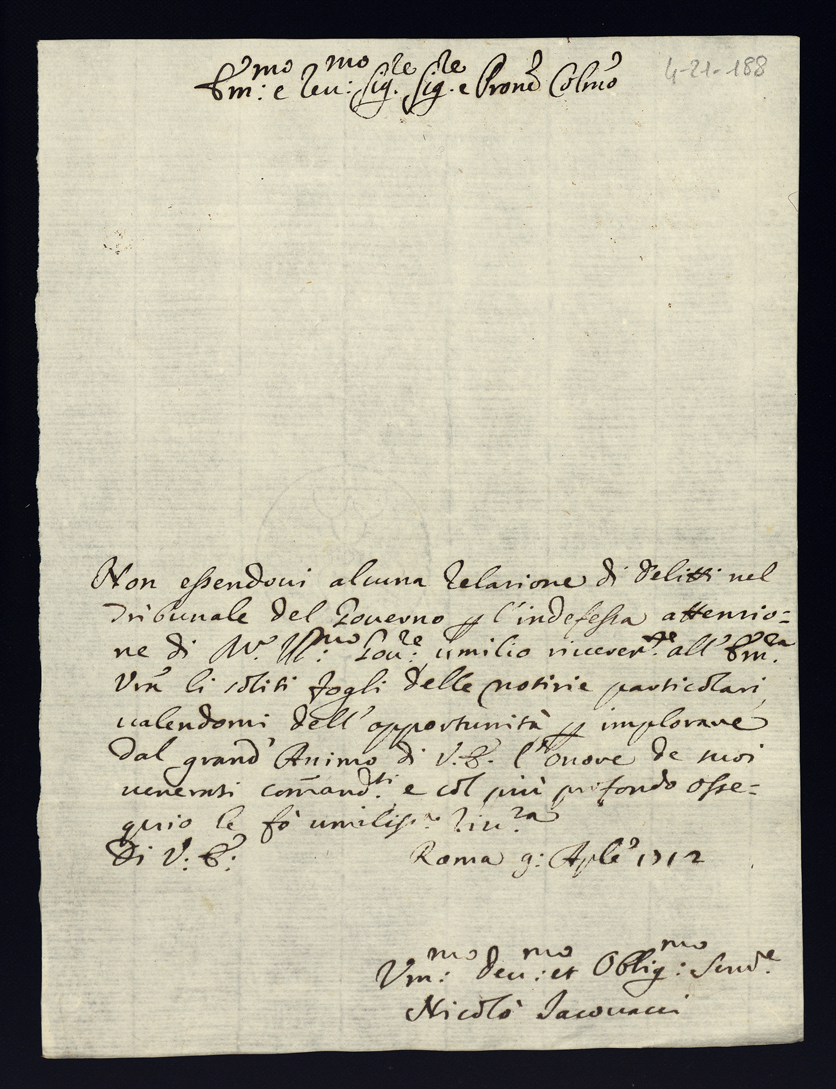 Em:mo e Reu:mo Sig.re Sig.re e Prone Colmo
4-21-188
Non essendoui alcuna Relazione di Delitti nel
Tribunale del Gouerno p l'indefessa attenzio=
ne di M.r Ill:mo Gou:re umilio riueren.te all'Em:za
Vra li soliti fogli delle notizie particolari,
ualendomi dell'opportunità p implorare
dal grand'Animo di V.E. l'onore de suoi
uenerati comand.ti e col più profondo osse=
quio le fò umiliss.a riu.za
Di V:E: Roma 9: Aple 1712
Vm:mo Deu:mo et Oblig:mo Seru.e
Nicolò Iacouacci